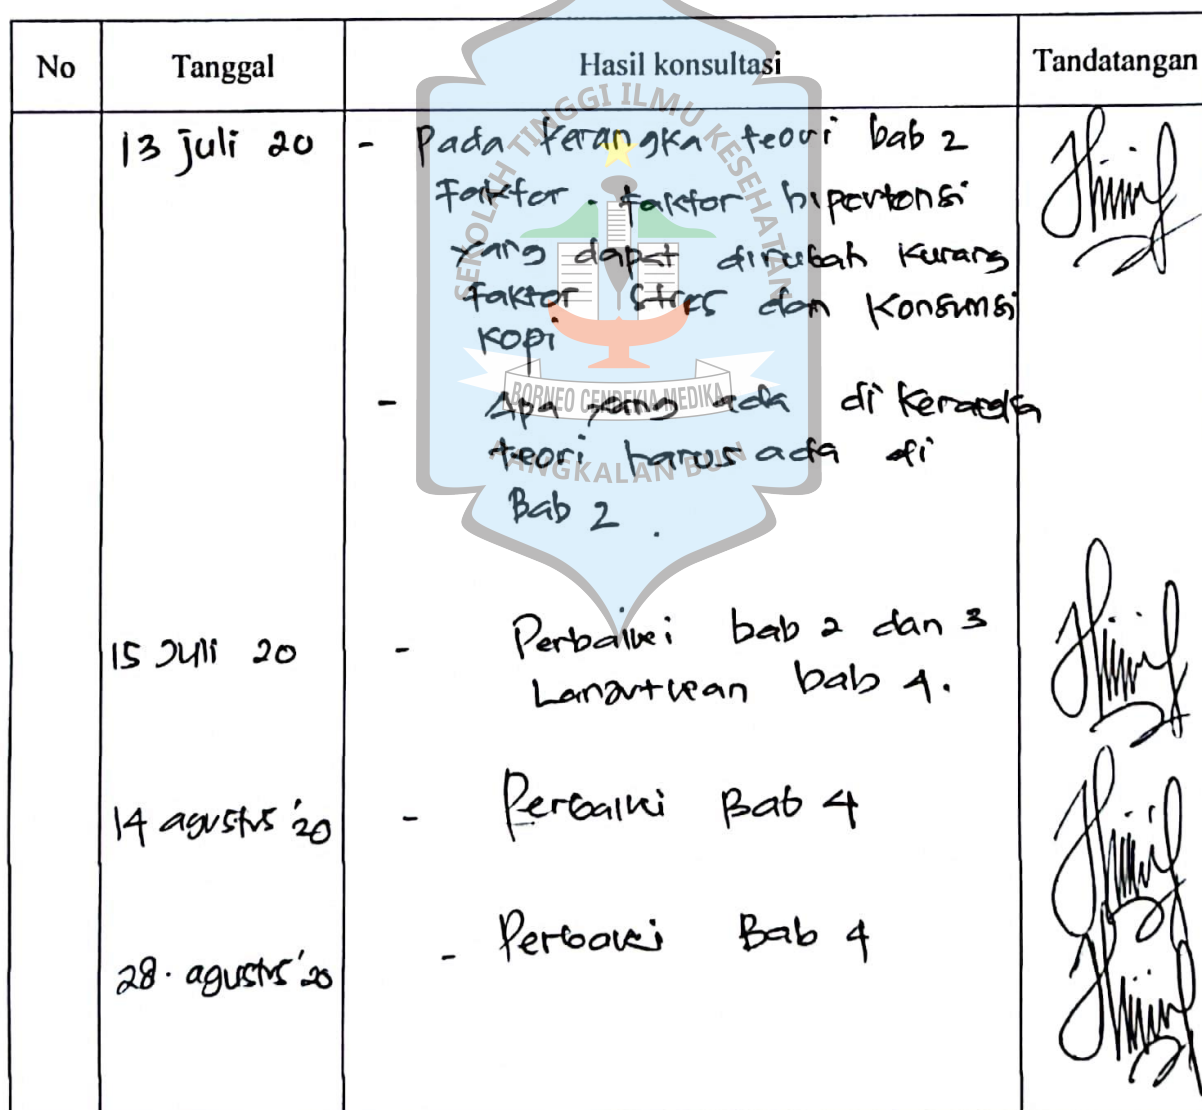 No Tanggal Hasil konsultasi Tandatangan
13 juli 20 - Pada kerangka teori bab 2
Faktor - faktor hipertensi
yang dapat dirubah kurang
faktor stres dan konsumsi
kopi
- Apa yang ada di kerangka
teori harus ada di
Bab 2 .
15 Juli 20 - Perbaiki bab 2 dan 3
Lanjutkan bab 4.
14 agustus '20 - Perbaiki Bab 4
28 . agustus '20 - Perbaiki Bab 4
SEKOLAH TINGGI ILMU KESEHATAN
BORNEO CENDEKIA MEDIKA
PANGKALAN BUN